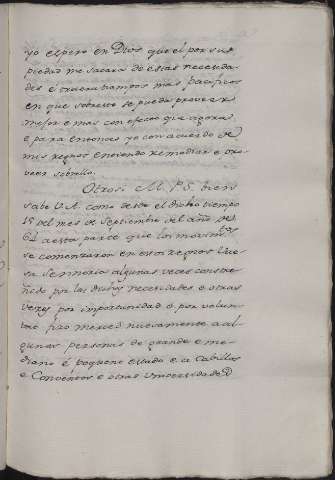 yo espero en Dios que él por su
piedad me sacara de estas necesida-
des e traera tiempos mas pacificos
en que sobresto se pueda proveer
mejor e mas con efecto que agora
e para entonces yo con acuerdo de
mis regnos entiendo remediar e pro-
veer sobrello.
Otrosi M. P. S. bien
sabe V. A. como desde el dicho tiempo
15 del mes de Septiembre del año de
64 a esta parte que los movimtos
se comenzaron en estos regnos Vues-
sa Señoria algunas veces constre-
ñido por las dichas necesidades e otras
vezes por importunidad o por volun-
tad fizo merced nuevamente a al-
gunas personas de grande e me-
diano é poqueno estado e a Cabillos
e Conventos e otras Universidades